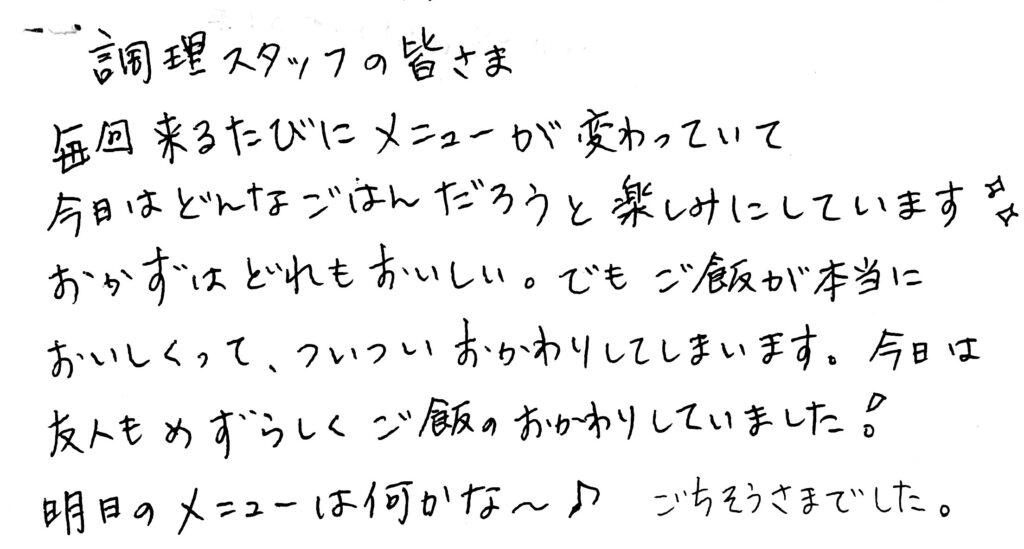 調理スタッフの皆さま
毎回来るたびにメニューが変わっていて
今日はどんなごはんだろうと楽しみにしています☆☆
おかずはどれもおいしい。でもご飯が本当に
おいしくって、ついついおかわりしてしまいます。今日は
友人もめずらしくご飯のおかわりしていました!
明日のメニューは何かな〜♪ ごちそうさまでした。